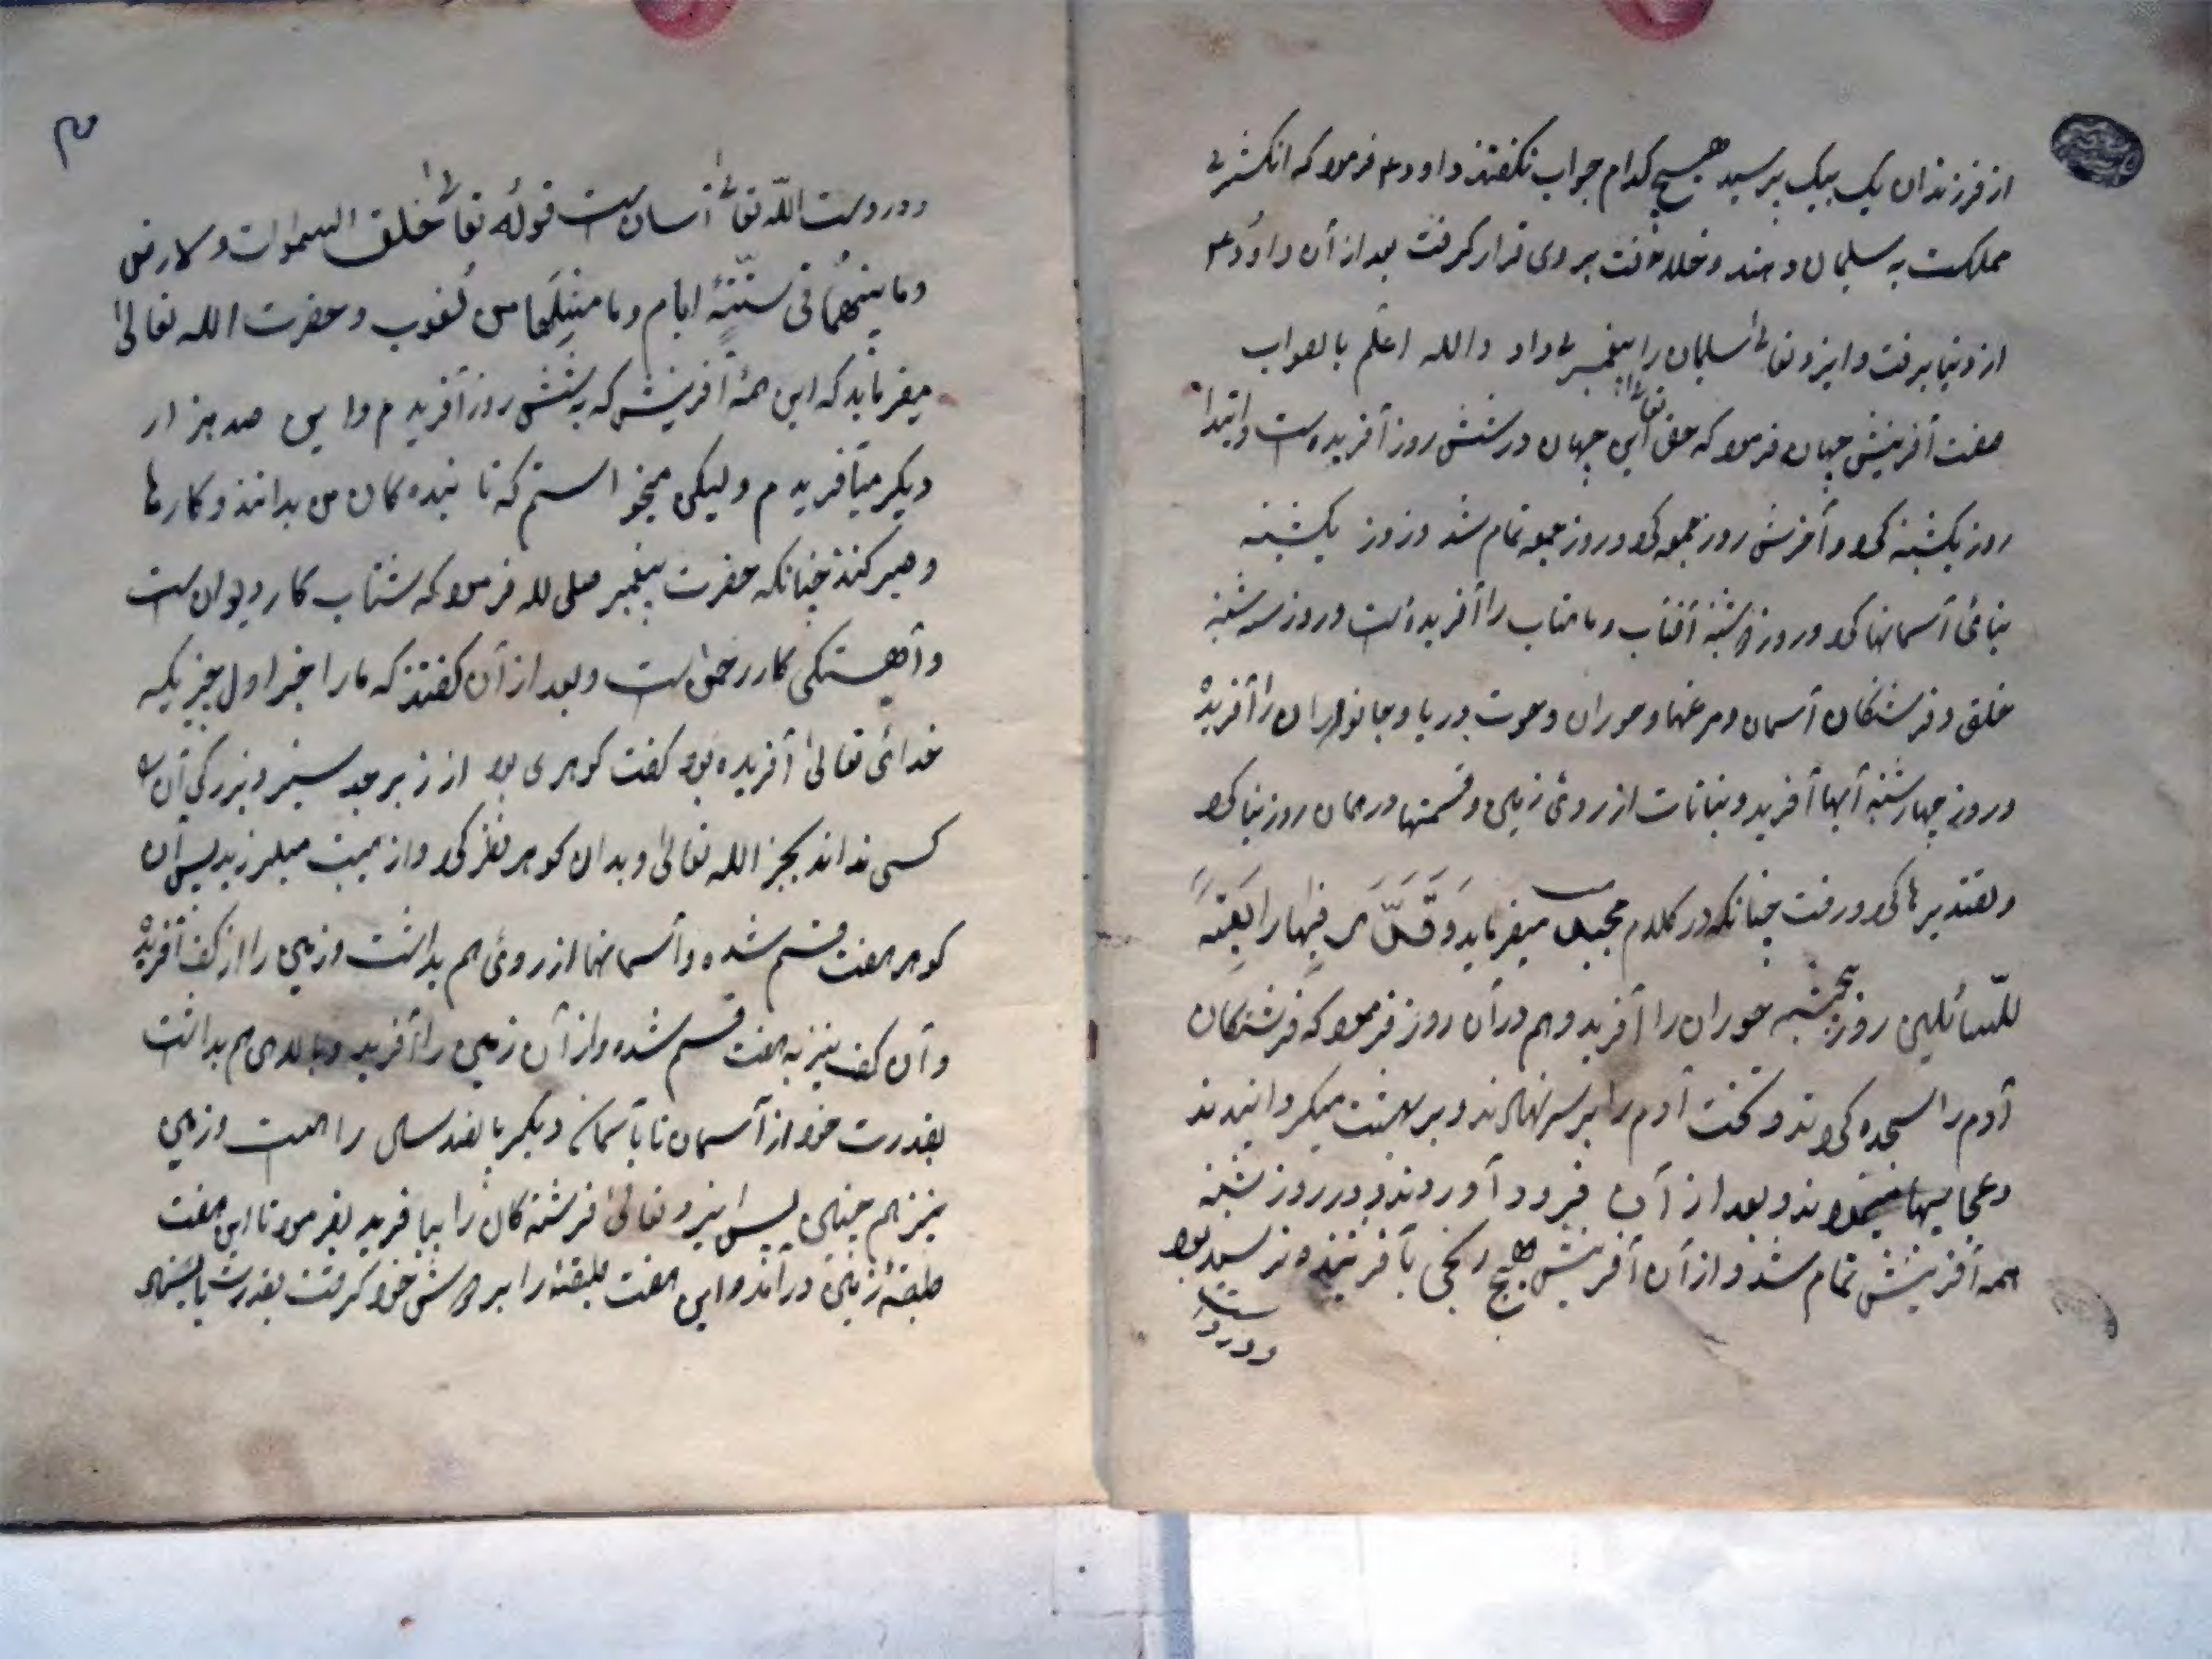 از فرزندان یک بیک پرسید هیچ کدام جواب نکفتند داود ع فرمود که انکشتری
مملکت به سلیمان دهند و خلافت بر وی قرار کرفت بعد از آن داود ع
از دنیا برفت و ایزد تعالی سلیمان را پیغمبری داد والله اعلم بالصواب
صفت آفرینش جهان فرمود که حق تعالی این جهان در شش روز آفریده است و ابتدا
روز یکشنبه کرد و آخرش روز جمعه کرد و روز جمعه تمام شد و روز یکشنبه
بنائی آسمانها کرد و روز دوشنبه آفتاب و ماهتاب را آفریده است و روز سه شنبه
خلق و فرشتکان آسمان و مرغها و حوران و حوت دریا و جانوران را آفرید
و روز چهارشنبه آبها آفرید و نباتات از روئ زمین و قسمتها در همان روز بنا کرد
و تقدیرها کرد و رفت چنانکه در کلام مجید میفرماید وَقَدَّرَ فِیها اربعة
للسائلین روز پنجشنبه حوران را آفرید و هم در آن روز فرمود که فرشتکان
آدم را سجده کردند و تخت آدم را بر سر نهادند و بر بهشت میکردانیدند
و عجایبها مینمودند و بعد از آن فرود آوردند و در روز شنبه
همه آفرینش تمام شد و از آن آفرینش هیچ رنجی بآفریننده نرسید بود
و در دست
و در دست الله تعالی آسان ست قوله تعالی خلق السموات والارض
وما بینهما فی ستّة ایام وما من لغوب و حضرت الله تعالی
میفرماید که این همهٔ آفرینش که به شش روز آفریدم و این صد هزار
دیکر میآفریدم ولیکن میخواستم که تا بنده کان من بدانند و کارها
و صبر کنند چنانکه حضرت پیغمبر صلی لله فرمود که شتاب کار دیوان ست
و آهستکی کار رحمن ست و بعد از آن کفتند که ما را خبر اول چیزیکه
خدائی تعالی آفریده بود کفت کوهری بود از زبرجد سبز و بزرکی آن
کسی نداند بجز الله تعالی و بدان کوهر نظر کرد و از هیبت میلرزید پس آن
کوهر هفت قسم شده و آسمانها از روئ هم بداشت و زمین را از کف آفرید
و آن کف نیز به هفت قسم شده و از آن زمین را آفرید و بالای هم بداشت
بقدرت خود از آسمان تا بآسمان دیکر پانصد سال راهست و زمین
نیز هم چنین پس ایزد تعالی فرشته کان را بیافرید بفرمود تا این هفت
طبقهٔ زمین در آمد و این هفت طبقه را بر دوش خود کرفت بقدرت